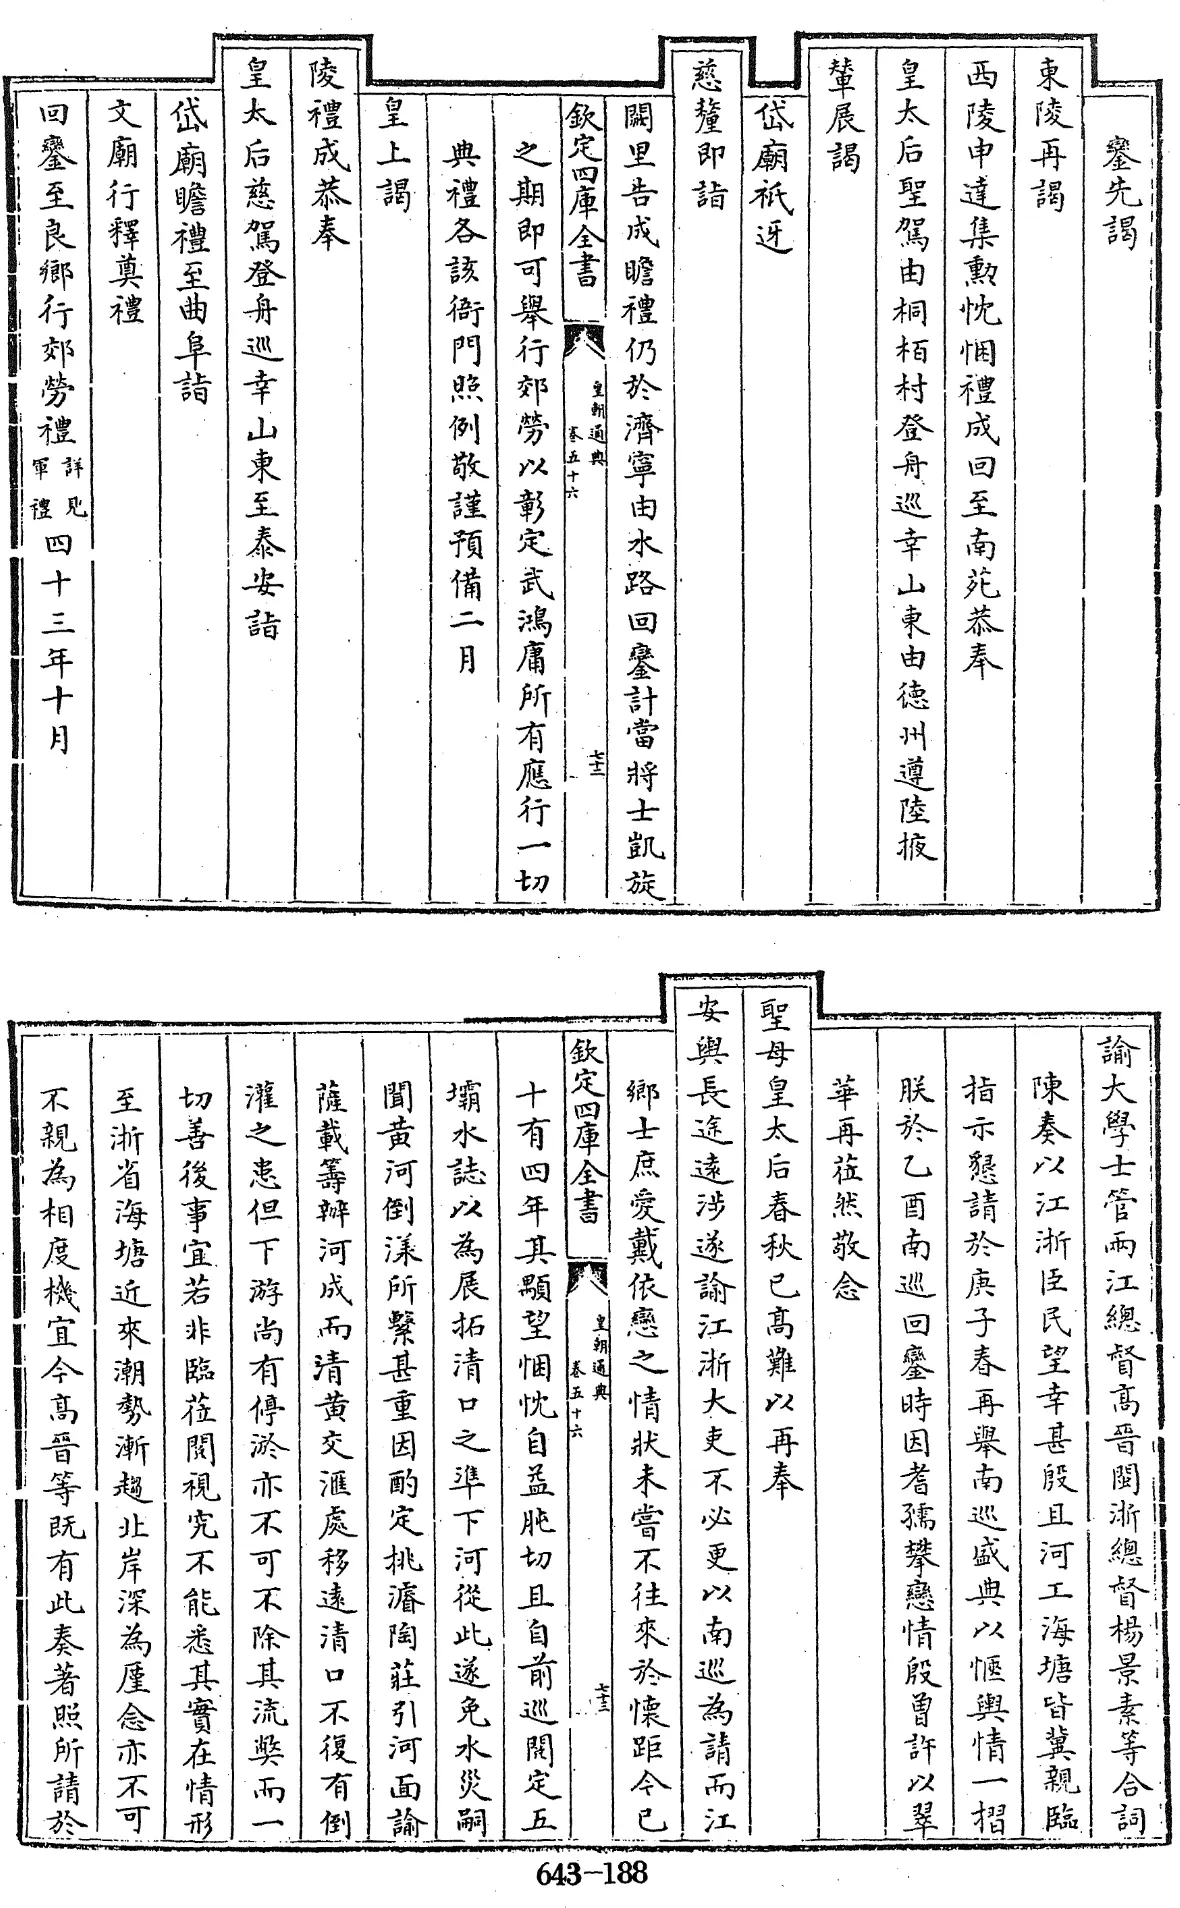 鑾先謁
東陵再謁
西陵申達集勲忱悃禮成回至南苑恭奉
皇太后聖駕由桐栢村登舟巡幸山東由德州遵陸掖
輦展謁
岱廟祇迓
慈釐即詣
闕里告成瞻禮仍於濟寧由水路回鑾計當將士凱旋
欽定四庫全書
皇朝通典
卷五十六
七十二
之期即可舉行郊勞以彰定武鴻庸所有應行一切
典禮各該衙門照例敬謹預備二月
皇上謁
陵禮成恭奉
皇太后慈駕登舟巡幸山東至泰安詣
岱廟瞻禮至曲阜詣
文廟行釋奠禮
回鑾至良鄉行郊勞禮詳見軍禮四十三年十月
諭大學士管兩江總督高晉閩浙總督楊景素等合詞
陳奏以江浙臣民望幸甚殷且河工海塘皆冀親臨
指示懇請於庚子春再舉南巡盛典以愜輿情一摺
朕於乙酉南巡回鑾時因耆孺攀戀情殷曾許以翠
華再蒞然敬念
聖母皇太后春秋已高難以再奉
安輿長途遠涉遂諭江浙大吏不必更以南巡為請而江
鄉士庶愛戴依戀之情狀未嘗不往來於懷距今已
欽定四庫全書
皇朝通典
卷五十六
七十三
十有四年其顒望悃忱自益肫切且自前巡閱定五
壩水誌以為展拓清口之準下河從此遂免水災嗣
聞黄河倒漾所繫甚重因酌定挑濬陶莊引河面諭
薩載籌辦河成而清黄交滙處移遠清口不復有倒
灌之患但下游尚有停淤亦不可不除其流獘而一
切善後事宜若非臨蒞閱視究不能悉其實在情形
至浙省海塘近來潮勢漸趨北岸深為廑念亦不可
不親為相度機宜今高晉等既有此奏著照所請於
643-188